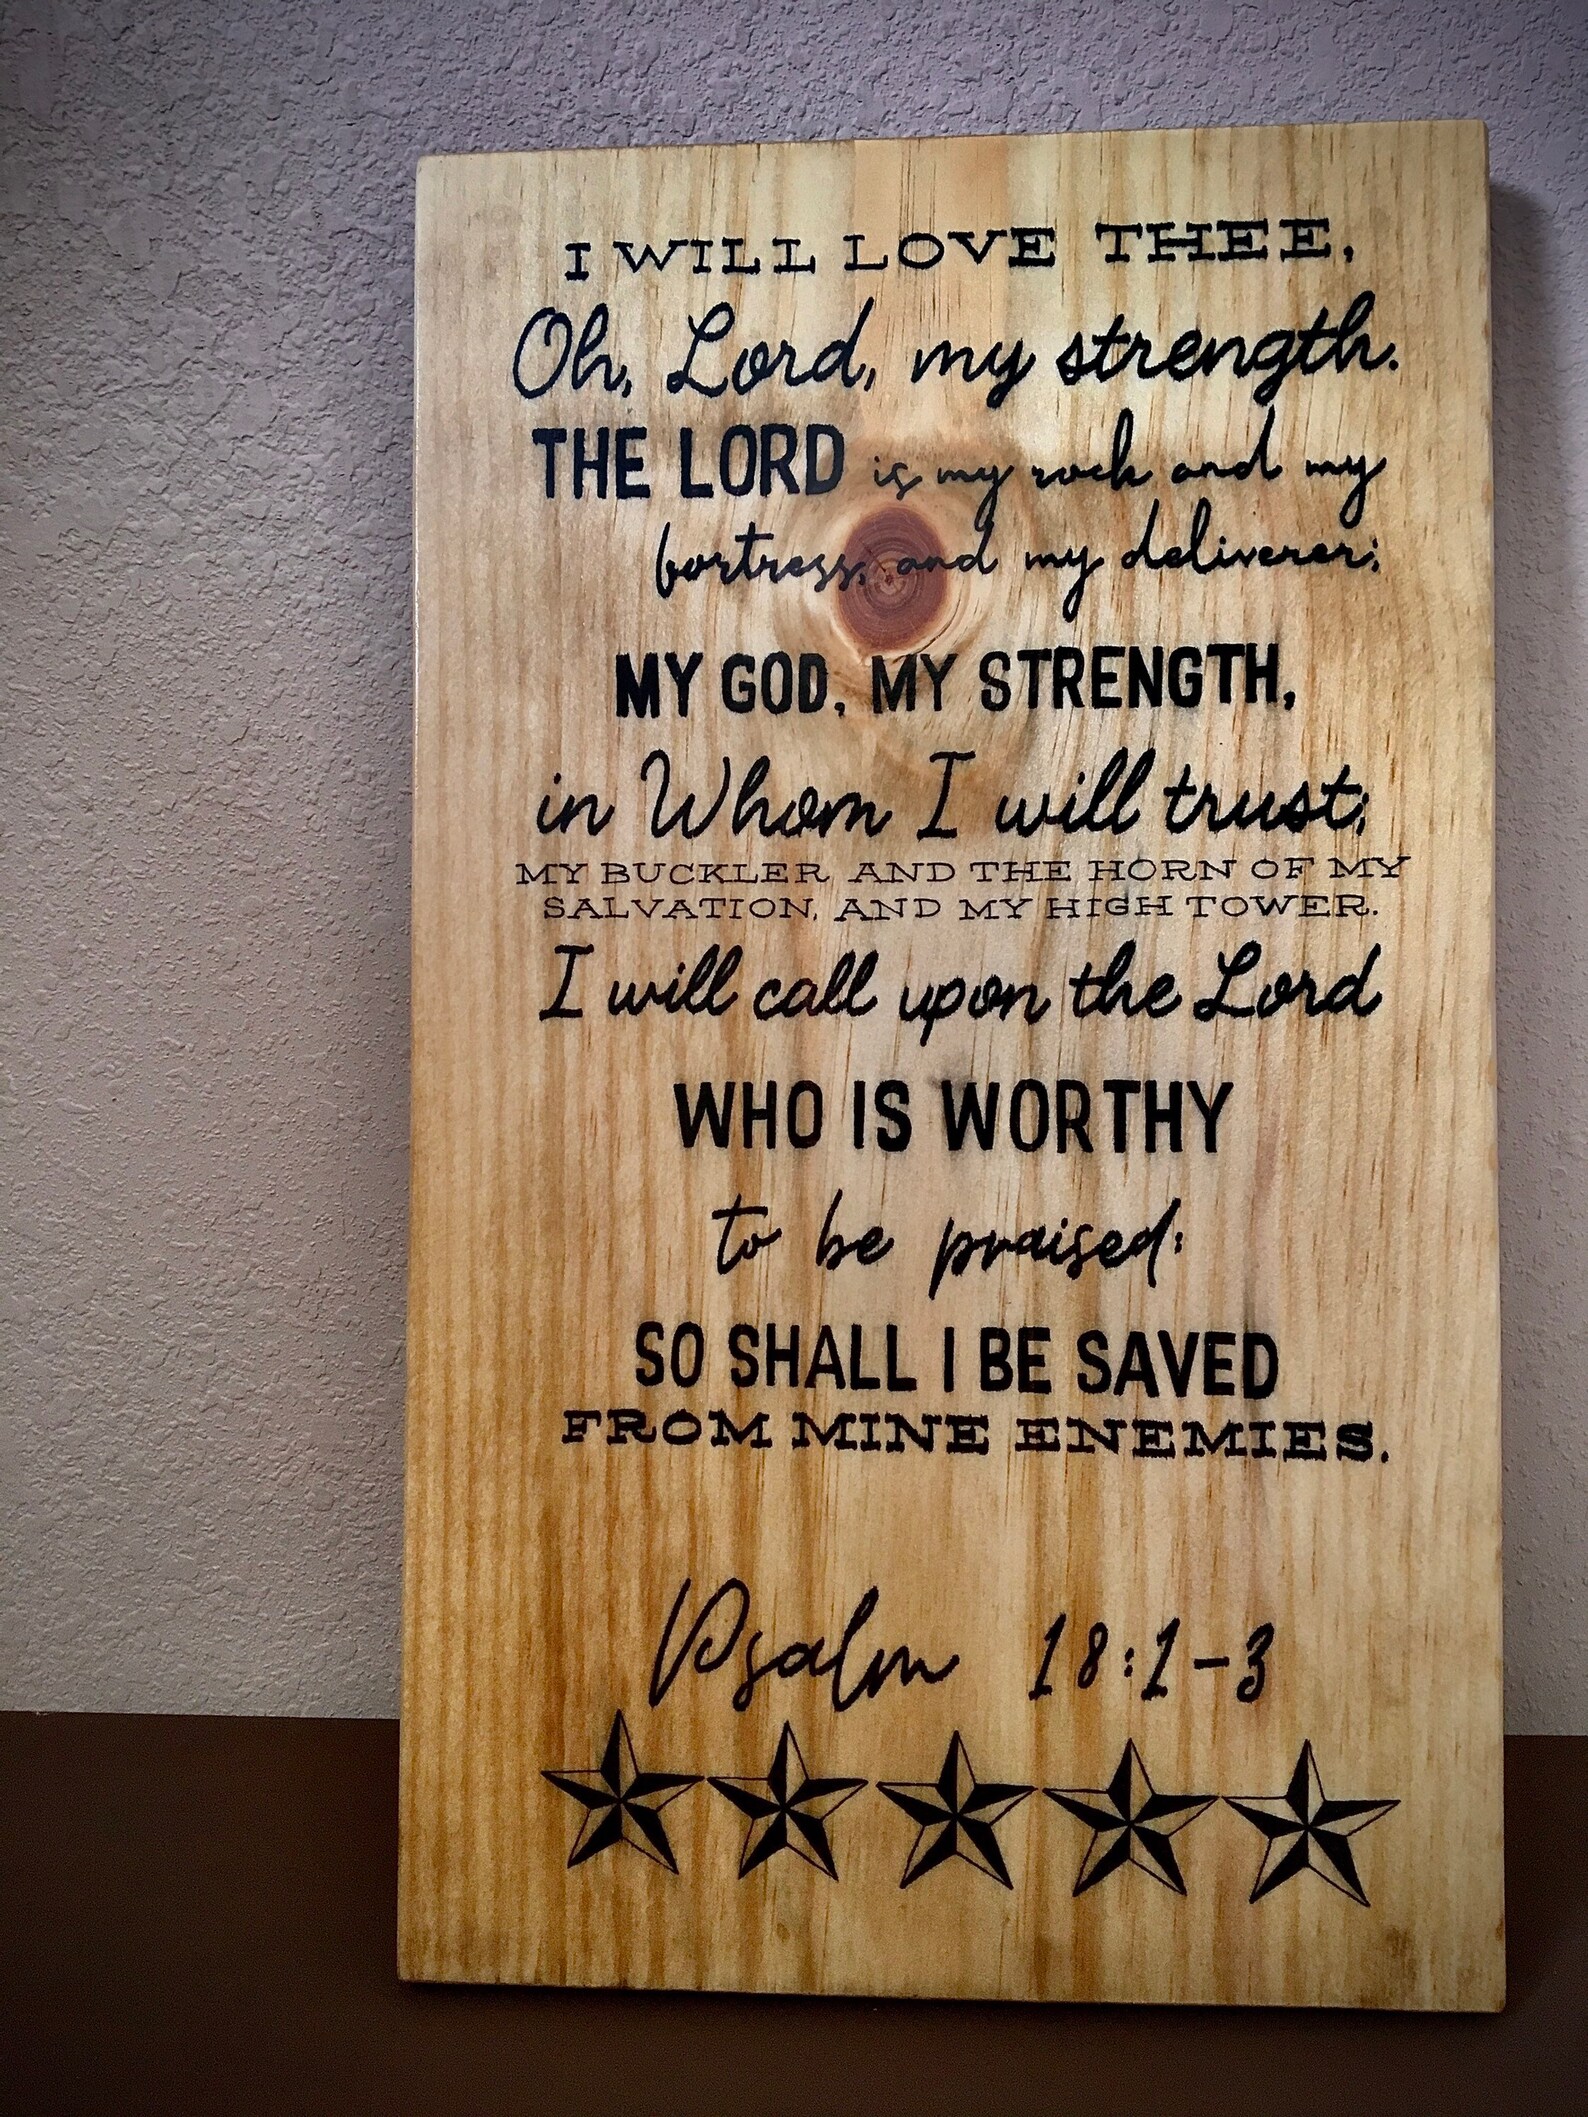 I WILL LOVE THEE,
Oh, Lord, my strength.
THE LORD is my rock and my
fortress, and my deliverer;
MY GOD, MY STRENGTH,
in Whom I will trust;
MY BUCKLER AND THE HORN OF MY
SALVATION, AND MY HIGH TOWER.
I will call upon the Lord
WHO IS WORTHY
to be praised:
SO SHALL I BE SAVED
FROM MINE ENEMIES.
Psalm 18:1-3